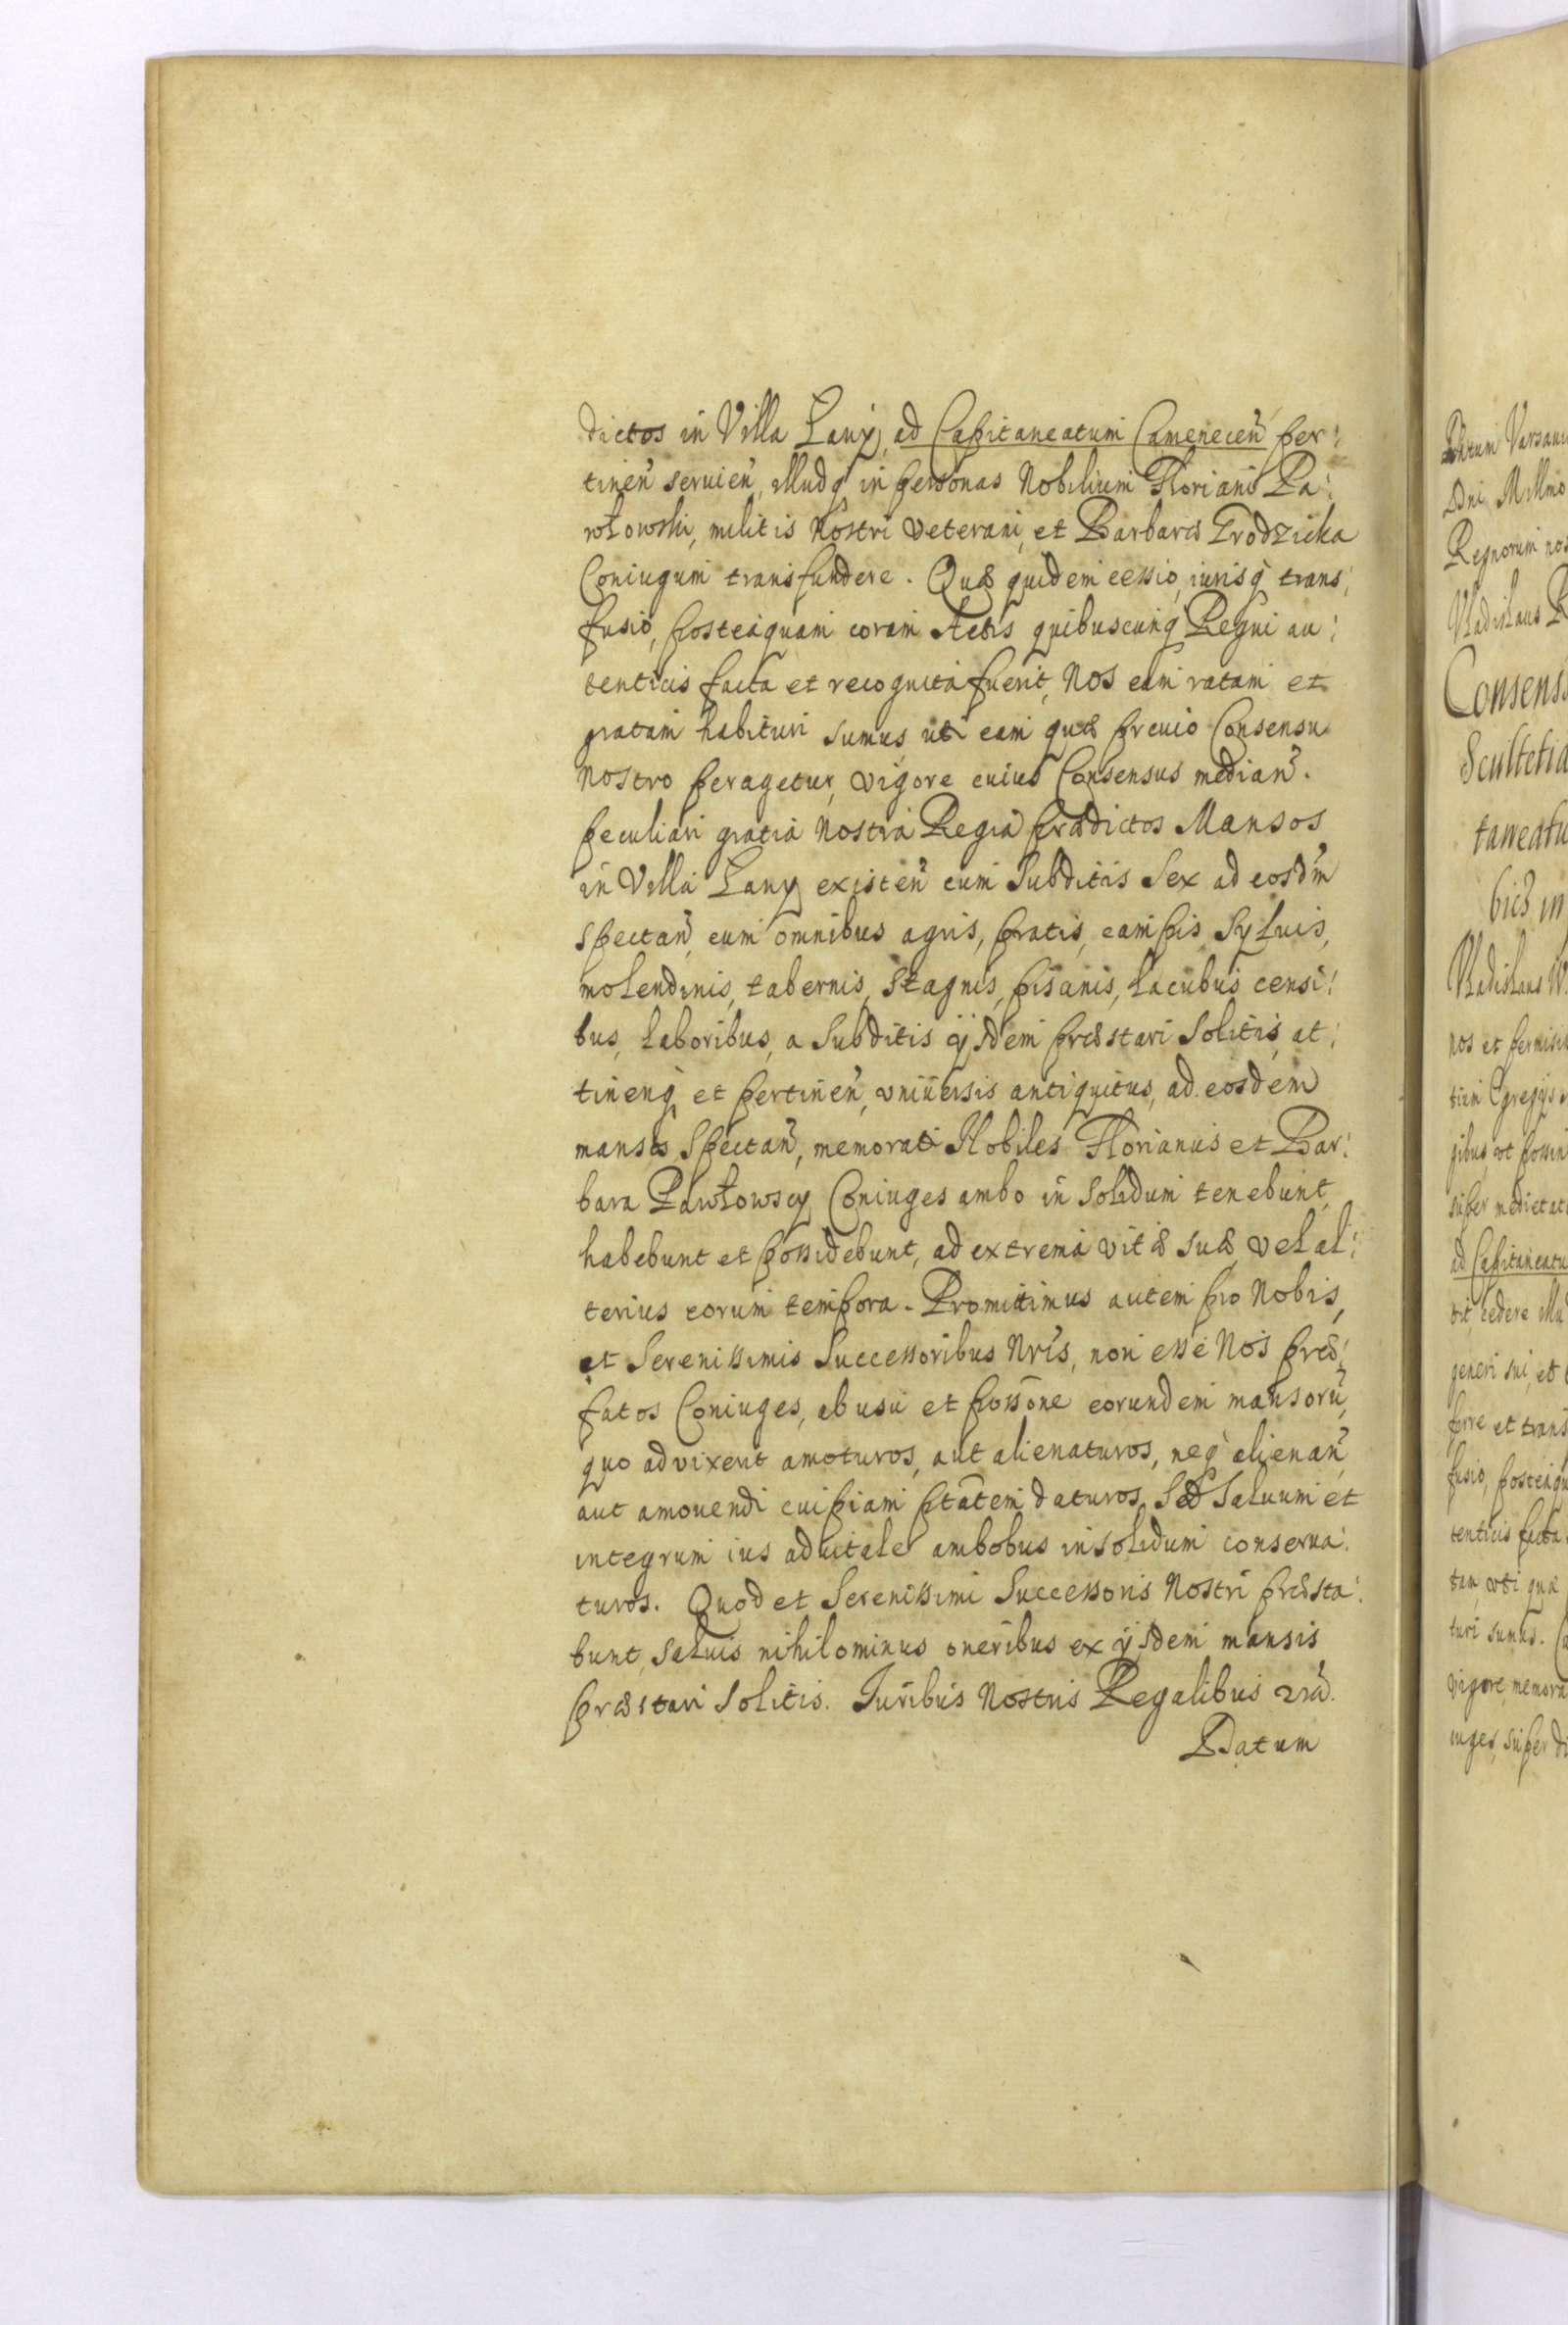 dictos in Villa Lany, ad Capitaneatum Camenecen̄ per:
tinen̄ seruien̄, illudq̨ in personas Nobilium Floriani Pa:
włowski, militis Nostri veterani, et Barbaræ Grodzicka
Coniugum transfundere. Quæ quidem cessio, iurisq̨ trans:
fusio, posteaquam coram Actis quibuscunq̨ Regni au:
tenticis facta et recognita fuerit, Nos eam ratam et
gratam habituri sumus, uti eam quæ preuio Consensu
nostro peragetur, vigore cuius Consensus median̄.
peculiari gratia nostra Regia prædictos Mansos
in Villa Lany existen̄ cum Subditis Sex ad eosd̄m
spectan̄, cum omnibus agris, pratis, campis, Syluis,
molendinis, tabernis, stagnis, piscinis, Lacubus censi:
bus, Laboribus, a Subditis ijsdem præstari solitis, at:
tinenq̨ et pertinen̄, vniuersis antiquitus, ad eosdem
mansos Spectan̄, memorati Nobiles Florianus et Bar:
bara Pawłowscy Coniuges ambo in solidum tenebunt,
habebunt et possidebunt, ad extrema vitæ suæ, vel al:
terius eorum tempora. Promittimus autem pro Nobis,
et Serenissimis Successoribus Nrīs, non esse Nos præ:
fatos Coniuges, ab usu et possōne eorundem mansorū,
quo advixerit amoturos, aut alienaturos, neq̨ alienan̄,
aut amouendi cuipiam ptātem daturos, Sed Saluum et
integrum ius aduitale ambobus insolidum conserua:
turos. Quod et Serenissimi Successoris Nostri præsta:
bunt, saluis nihilominus oneribus ex ijsdem mansis
præstari solitis. Juribus Nostris Regalibus
Datum
Datum
Dni Millmo
Regnorum
Vladislaus
Consens
Scultetia
taneatu
in
Vladislaus
nos et permisis
tum Egregijs
gibus, vt possin
super medietat
ad Capitaneatu
cedere illu
generi sui, et
ferre et trans
fusio, posteaqu
tenticis facta
tam, vti quæ
turi sumus.
vigore memora
iuges, super di